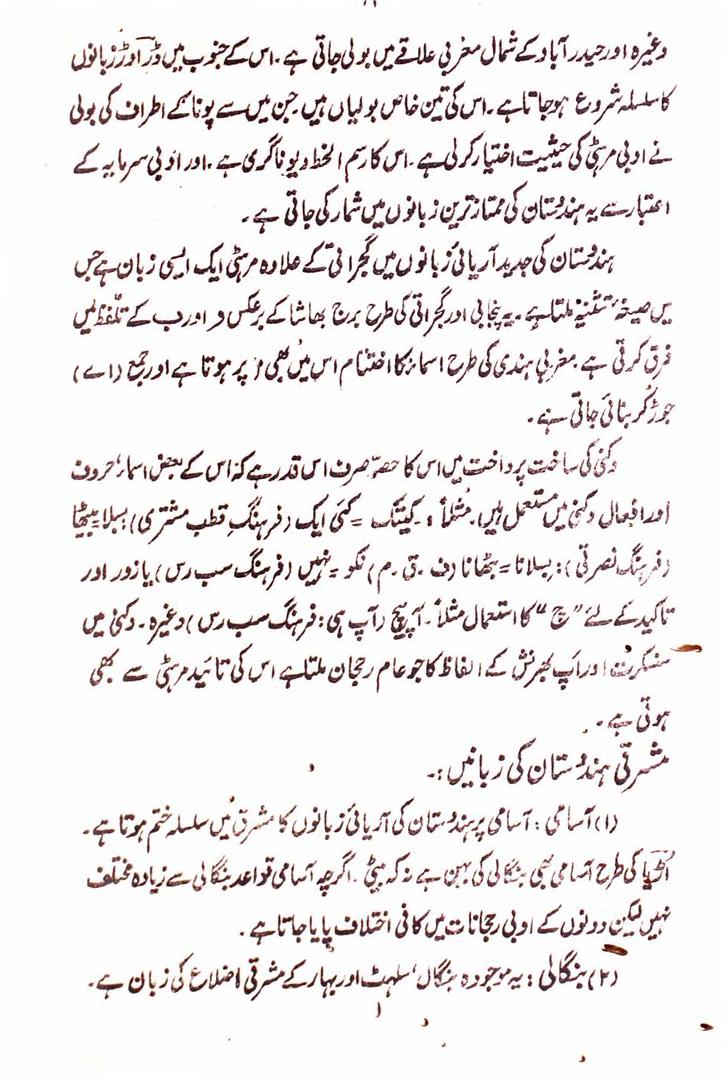 وغیرہ اور حیدر آباد کے شمال مغربی علاقے میں بولی جاتی ہے۔ اس کے جنوب میں دڑاوڑ زبانوں
کا سلسلہ شروع ہوجاتا ہے۔ اس کی تین خاص بولیاں ہیں جن میں سے پونا کے اطراف کی بولی
نے ادبی مرہٹی کی حیثیت اختیار کرلی ہے۔ اس کا رسم الخط دیوناگری ہے۔ اور ادبی سرمایہ کے
اعتبار سے یہ ہندوستان کی ممتاز ترین زبانوں میں شمار کی جاتی ہے۔
ہندوستان کی جدید آریائی زبانوں میں گجراتی کے علاوہ مرہٹی ایک ایسی زبان ہے جس
میں صیغۂ تثنیہ ملتا ہے۔ یہ پنجابی اور گجراتی کی طرح برج بھاشا کے برعکس و اور ب کے تلفظ میں
فرق کرتی ہے۔ مغربی ہندی کی طرح اسماء کا اختتام اس میں بھی ا پر ہوتا ہے اور جمع (اے)
جوڑ کر بنائی جاتی ہے۔
دکنی کی ساخت پرداخت میں اس کا حصہ صرف اس قدر ہے کہ اس کے بعض اسماء، حروف
اور افعال دکنی میں مستعمل ہیں۔ مثلاً :۔ کیتک = کئی ایک (فرہنگِ قطب مشتری) بسلا = بیٹھا
(فرہنگ نصرتی): بسلانا = بٹھانا (ف۔ق۔م) نکو = نہیں (فرہنگ سب رس) یا زور اور
تاکید کے لئے "چ" کا استعمال مثلاً۔ آپیچ (آپ ہی: فرہنگ سب رس) وغیرہ۔ دکنی میں
سنسکرت اور اَپ بھرنش کے الفاظ کا جو عام رجحان ملتا ہے اس کی تائید مرہٹی سے بھی
ہوتی ہے۔
مشرقی ہندوستان کی زبانیں :۔
(۱) آسامی : آسامی پر ہندوستان کی آریائی زبانوں کا مشرق میں سلسلہ ختم ہوتا ہے۔
اڑیا کی طرح آسامی بھی بنگالی کی بہن ہے نہ کہ بیٹی۔ اگرچہ آسامی قواعد بنگالی سے زیادہ مختلف
نہیں لیکن دونوں کے ادبی رجحانات میں کافی اختلاف پایا جاتا ہے۔
(۲) بنگالی : یہ موجودہ بنگال، سلہٹ اور بہار کے مشرقی اضلاع کی زبان ہے۔